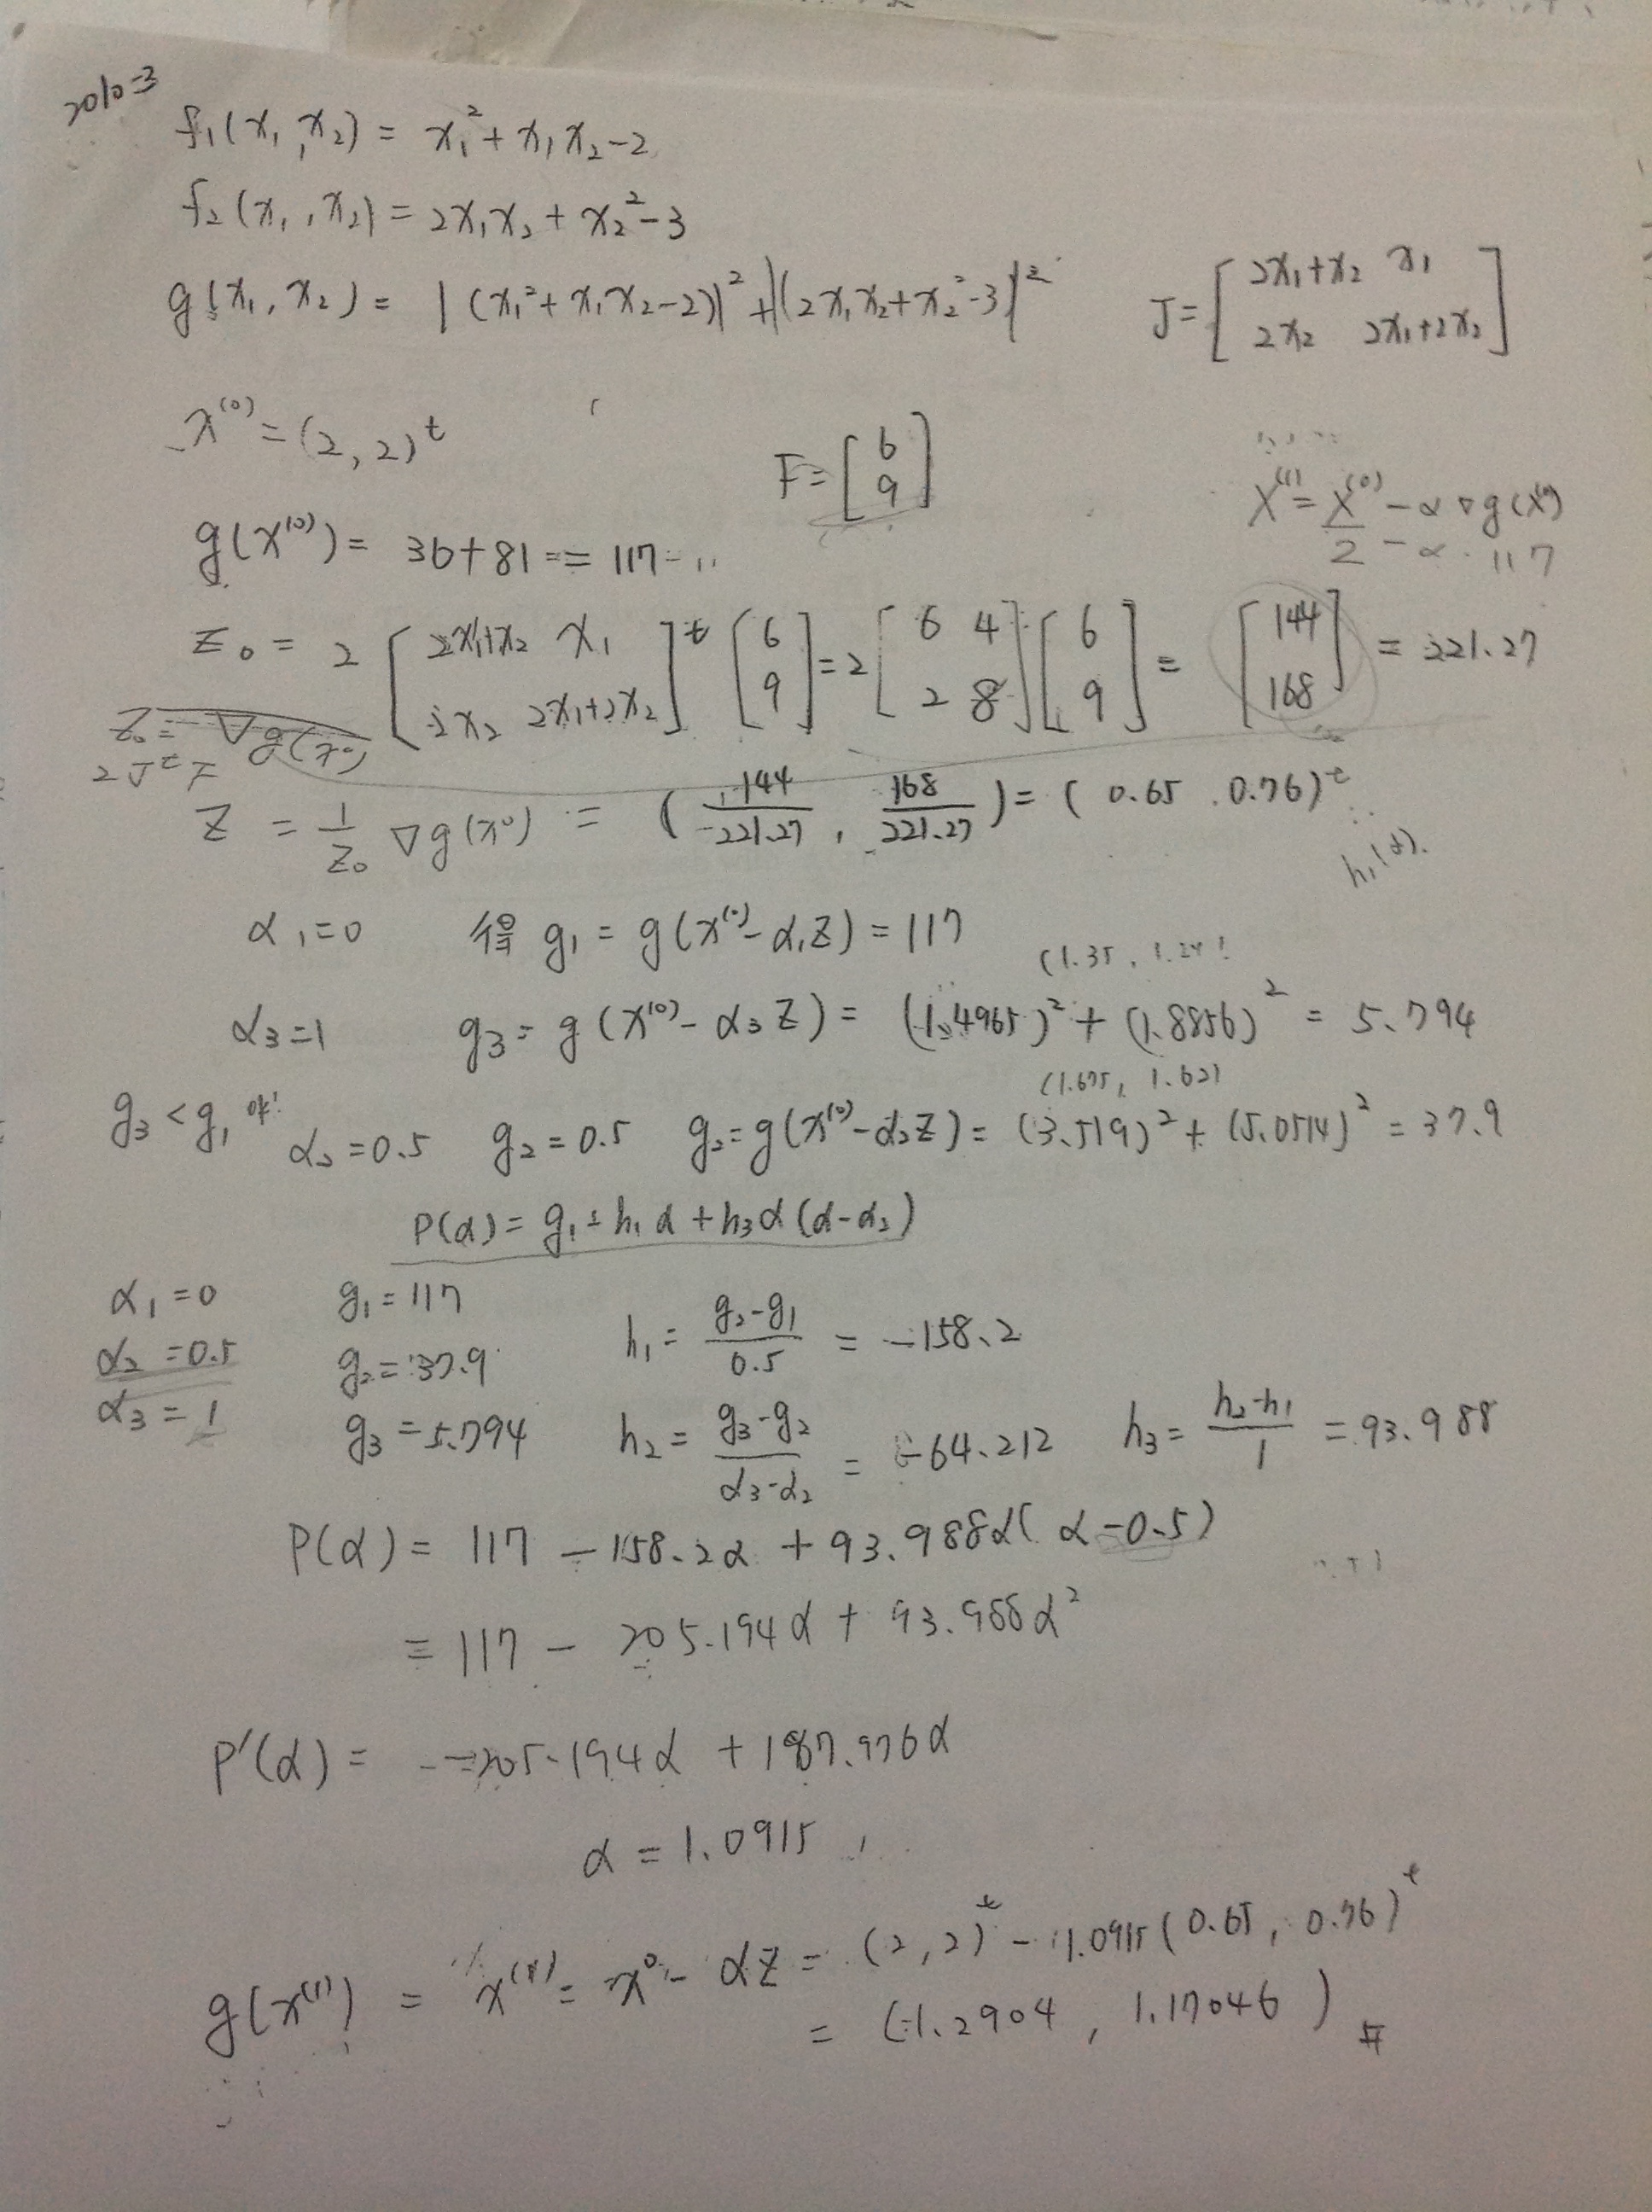 2010-3
f₁(x₁, x₂) = x₁² + x₁x₂ - 2
f₂(x₁, x₂) = 2x₁x₂ + x₂² - 3
g(x₁, x₂) = |(x₁² + x₁x₂ - 2)|² + |(2x₁x₂ + x₂² - 3|² J = [2x₁+x₂ x₁; 2x₂ 2x₁+2x₂]
x⁽⁰⁾ = (2, 2)ᵗ F = [6; 9]
X⁽¹⁾ = X⁽⁰⁾ - α∇g(X⁰)
2 - α · 117
g(x⁽⁰⁾) = 36 + 81 == 117
z₀ = 2 [2x₁+x₂ x₁; 2x₂ 2x₁+2x₂]ᵗ [6; 9] = 2 [6 4; 2 8] [6; 9] = [144; 168] = 221.27
z₀ = ∇g(x⁰)
2JᵗF
z = 1/z₀ ∇g(x⁰) = (144/221.27, 168/221.27) = (0.65 , 0.76)ᵗ
h₁(α).
α₁ = 0 得 g₁ = g(x⁽⁰⁾ - α₁z) = 117
(1.35, 1.24)
α₃ = 1 g₃ = g(x⁽⁰⁾ - α₃z) = (1.4965)² + (1.8856)² = 5.794
(1.675, 1.62)
g₃ < g₁ ok! α₂ = 0.5 g₂ = 0.5 g₂ = g(x⁽⁰⁾ - α₂z) = (3.519)² + (5.0514)² = 37.9
P(α) = g₁ + h₁α + h₃α(α - α₂)
α₁ = 0 g₁ = 117 h₁ = (g₂ - g₁)/0.5 = -158.2
α₂ = 0.5 g₂ = 37.9
α₃ = 1 g₃ = 5.794 h₂ = (g₃ - g₂)/(α₃ - α₂) = -64.212 h₃ = (h₂ - h₁)/1 = 93.988
P(α) = 117 - 158.2α + 93.988α(α - 0.5)
= 117 - 205.194α + 93.988α²
P'(α) = -205.194α + 187.976α
α = 1.0915
g(x⁽¹⁾) = x⁽¹⁾ = x⁰ - αz = (2, 2)ᵗ - 1.0915(0.65, 0.76)ᵗ
= (1.2904, 1.17046) #